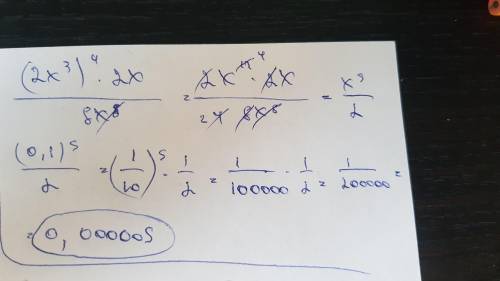 (2x³)⁴ · 2x / 8x⁸ = 2x¹² ⁴ · 2x / 2 4 8x⁸ = x⁵ / 2
(0,1)⁵ / 2 = (1/10)⁵ · 1/2 = 1/100000 · 1/2 = 1/200000 =
= 0,000005